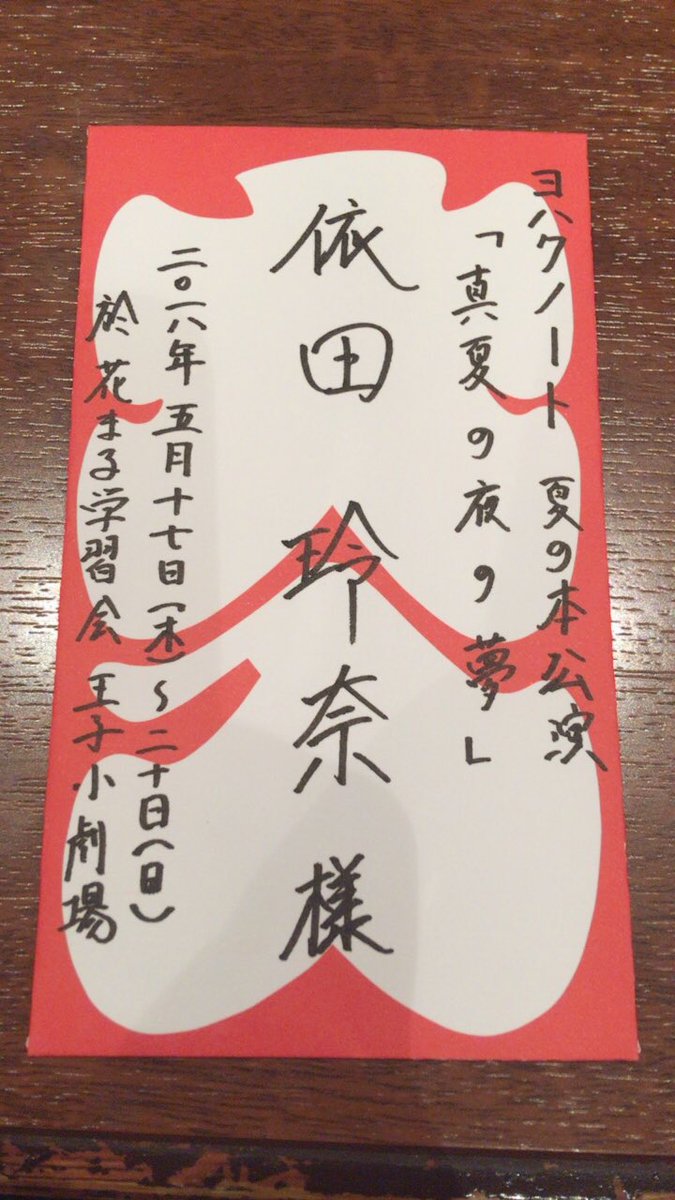 ヨハクノート 夏の本公演
「真夏の夜の夢」
依田玲奈様
二〇一八年五月十七日(木)～二十日(日)
於 花まる学習会 王子小劇場